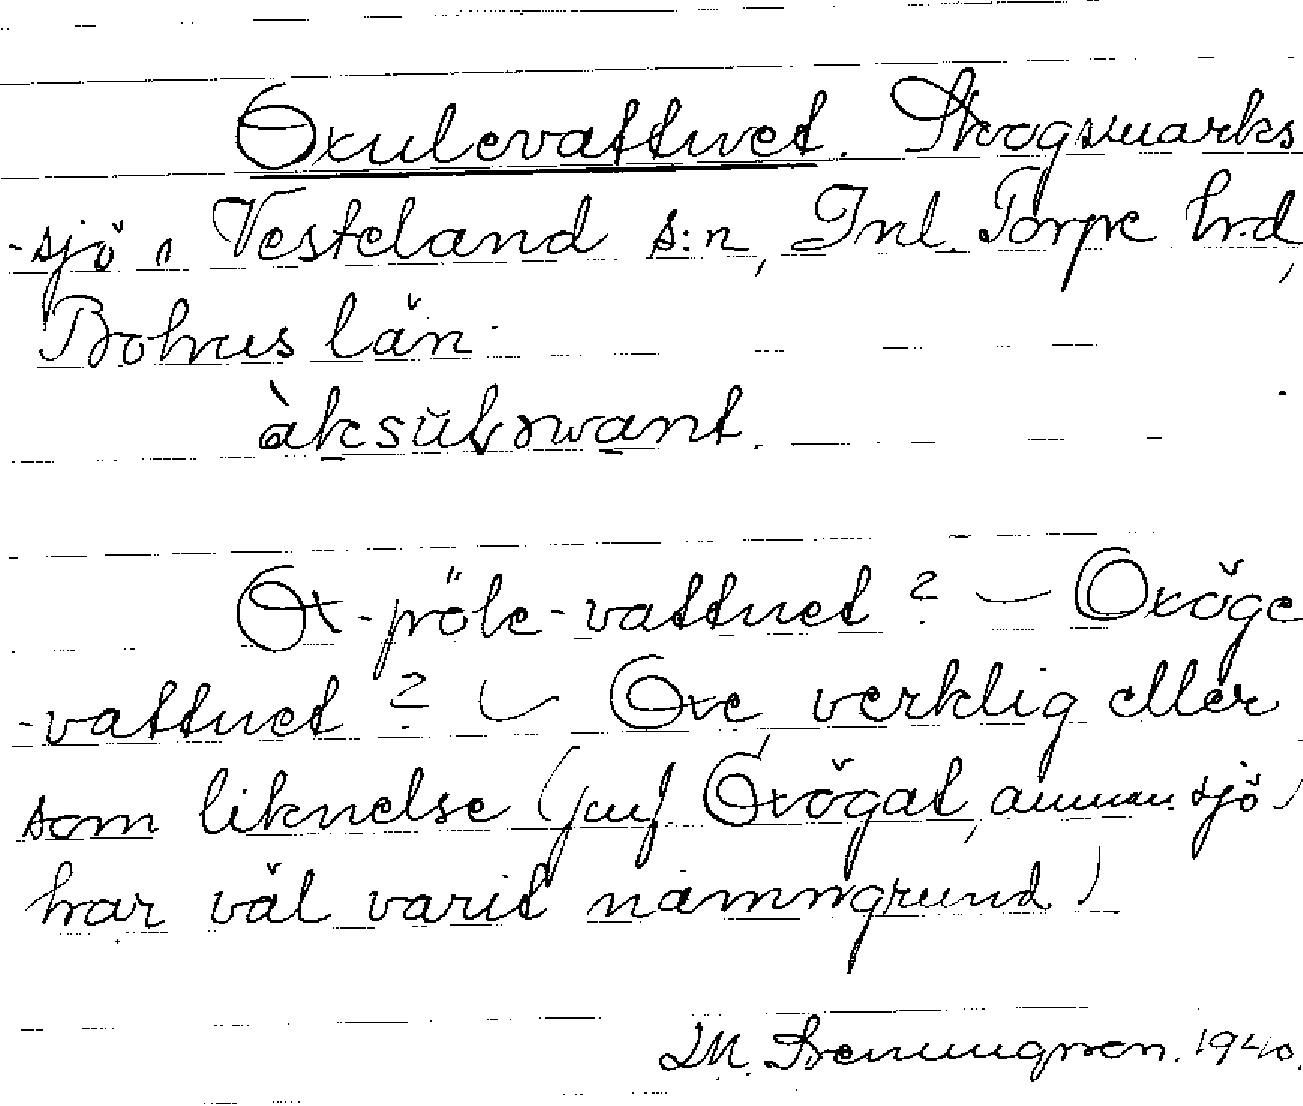 Oxulevattnet. Skogsmarks
-sjö i Vesteland s:n, Inl. Torpe hrd,
Bohus län.
Ox-pöle-vattnet? – Oxöge
-vattnet? – Oxe, verklig eller
som liknelse (jmf Oxögat, annan sjö)
har väl varit namngrund)
1940.